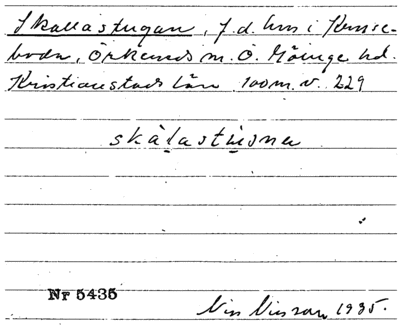 Skallastugan, f.d. hus i Kunse-
boda, Örkeneds sn. Ö. Göinge hd.
Kristianstads län. 100 m. v. 229
skàlastụsna
Nr 5435
Nils Nilsson 1935.